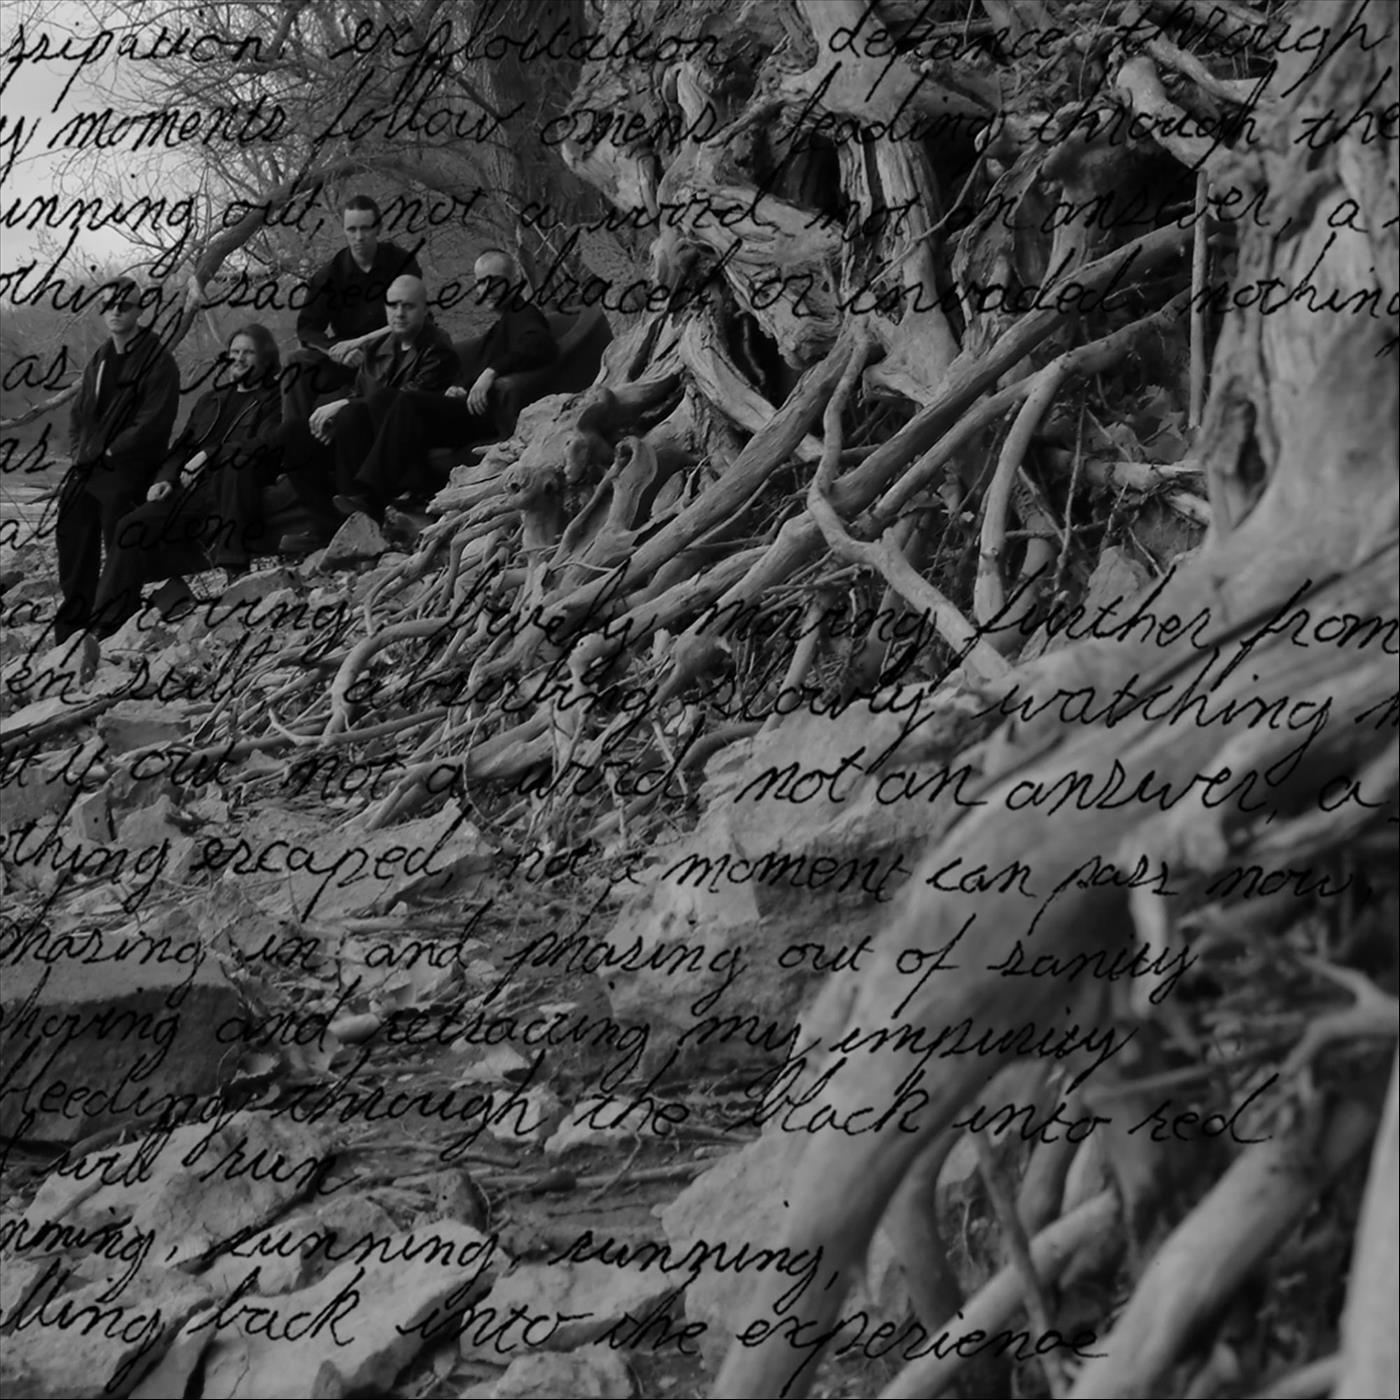 exploitation, defiance through
y moments follow omens, leading through the
unning out, not a word not an answer, a
othing sacred embraced or invaded, nothin
as I run
as I run
all alone
moving further from
en still, absorbing slowly watching
out, not a word, not an answer, a
othing escaped, not a moment can pass now,
hasing in, and phasing out of sanity
moving and retracing my impurity
leeding through the black into red
I will run
nning, running, running,
lling back into the experience